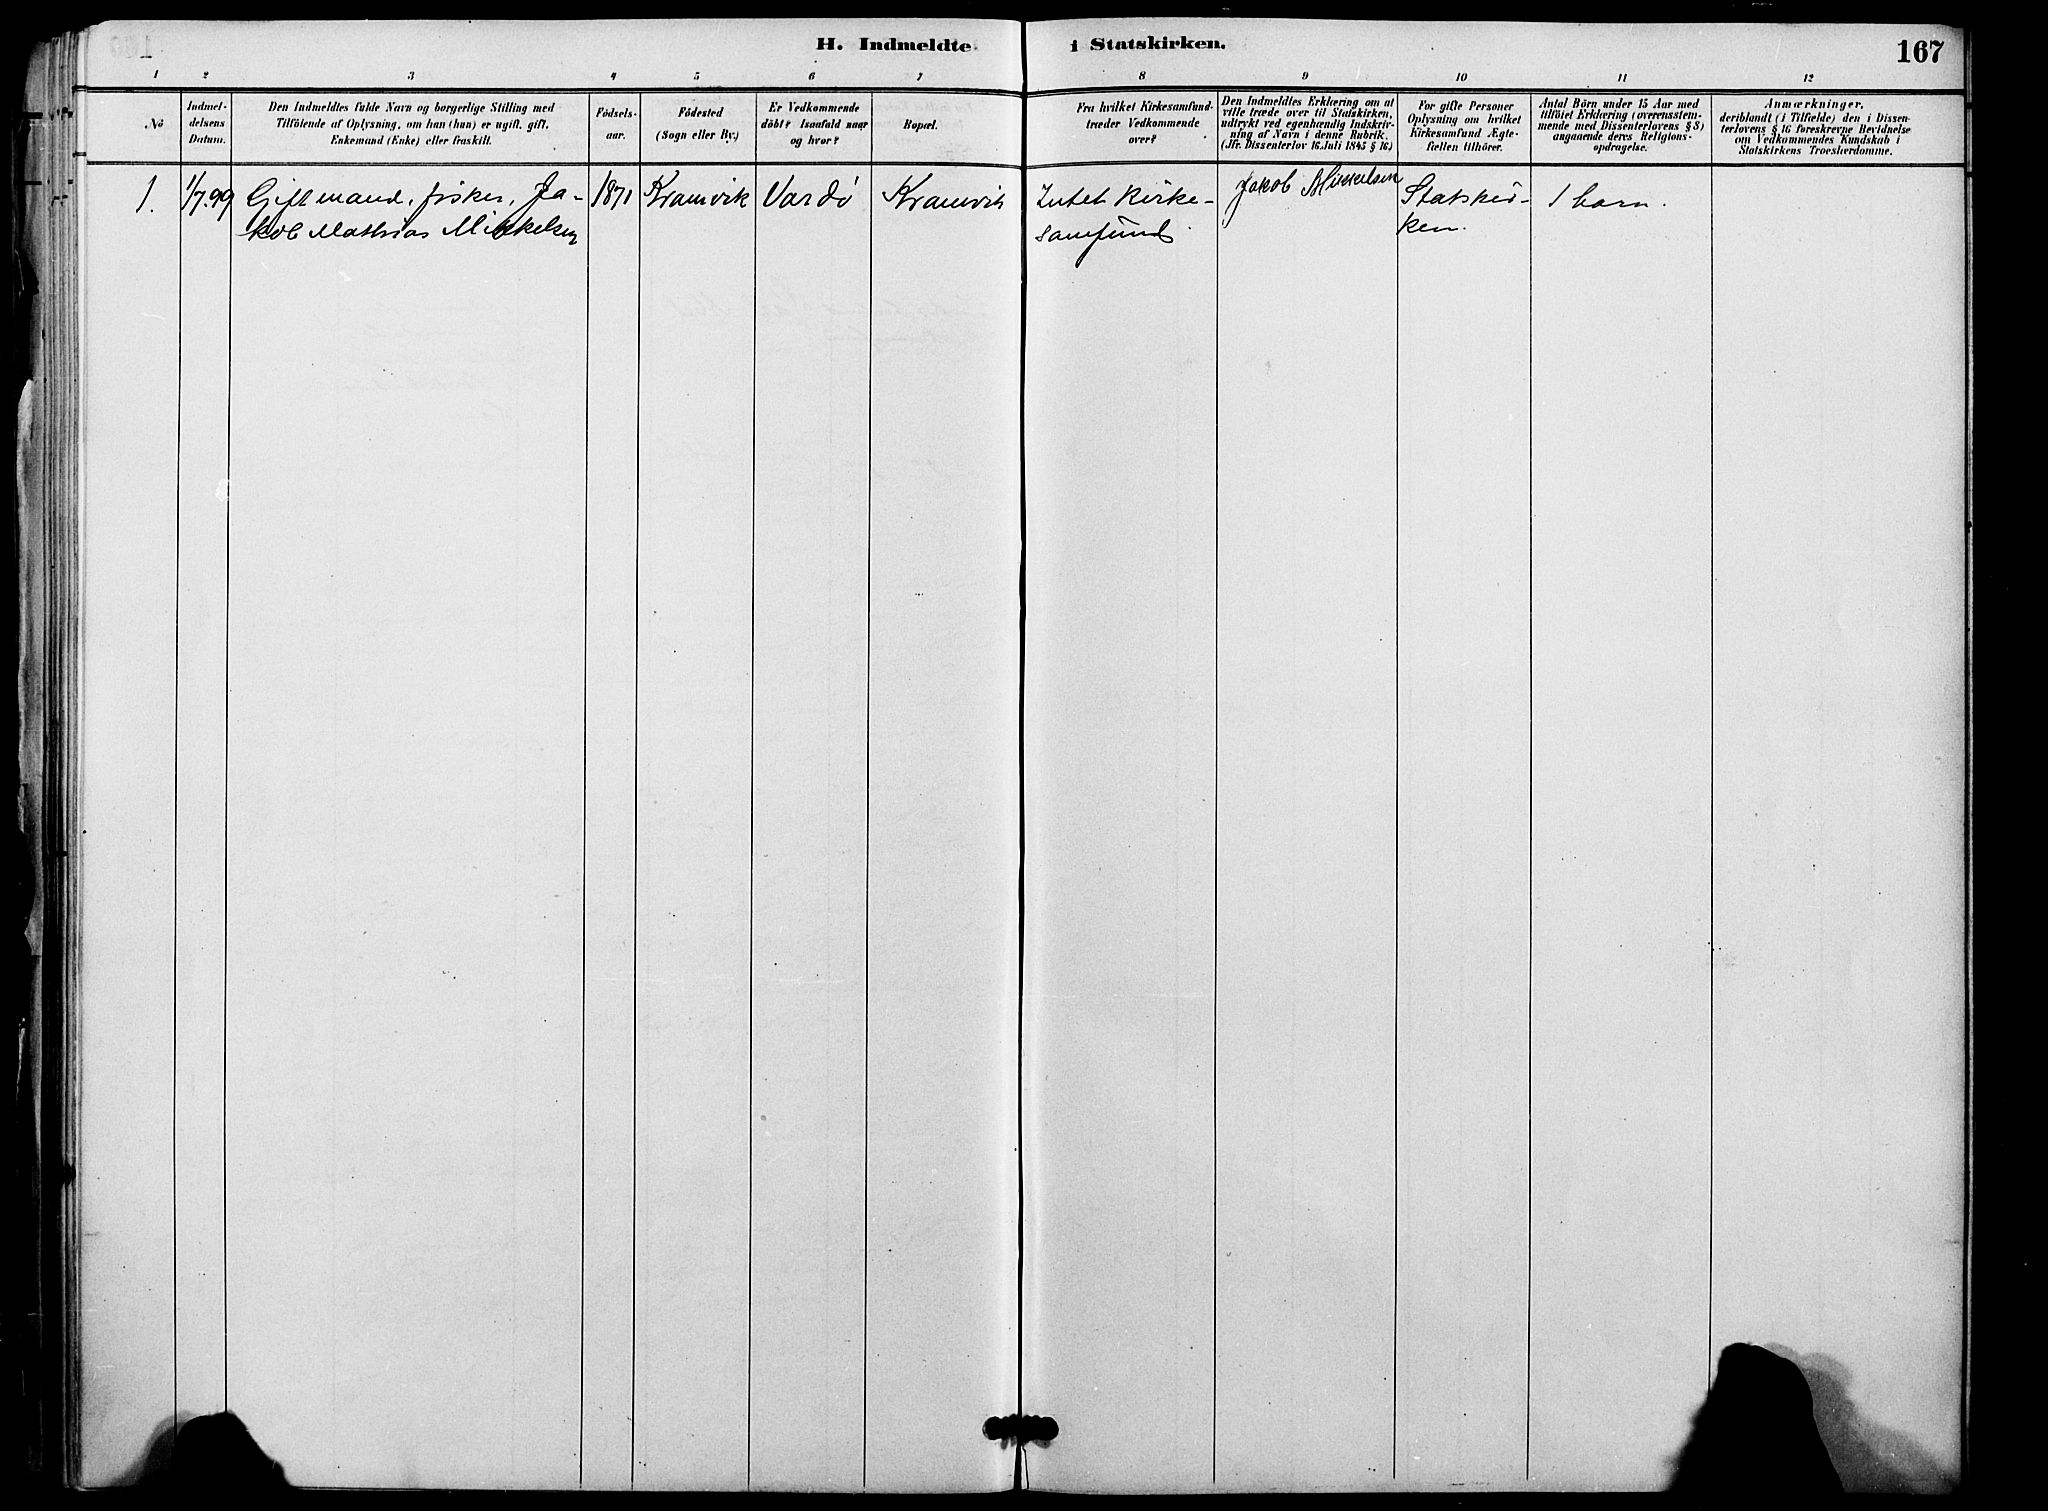 H. Indmeldte i Statskirken.
167
1 2 3 4 5 6 7 8 9 10 11 12
No
Indmel-
delsens
Datum.
Den Indmeldtes fulde Navn og borgerlige Stilling med
Tilföiende af Oplysning, om han (hun) er ugift, gift,
Enkemand (Enke) eller fraskilt.
Födsels-
aar.
Födested
(Sogn eller By.)
Er Vedkommende
döbt? Isaafald naar
og hvor?
Bopæl.
Fra hvilket Kirkesamfund
træder Vedkommende
over?
Den Indmeldtes Erklæring om at
ville træde over til Statskirken,
udtrykt ved egenhændig Indskriv-
ning af Navn i denne Rubrik.
(Jfr. Dissenterlov 16 Juli 1845 § 16)
For gifte Personer
Oplysning om hvilket
Kirkesamfund Ægte-
fællen tilhörer.
Antal Börn under 15 Aar med
tilföiet Erklæring (overensstem-
mende med Dissenterlovens § 8)
angaaende deres Religions-
opdragelse.
Anmærkninger,
deriblandt (i Tilfælde) den i Dissen-
terlovens § 16 foreskrevne Bevidnelse
om Vedkommendes Kundskab i
Statskirkens Troeslærdomme.
1.
1/7.99
Gift mand, fisker, Ja-
kob Mathias Mikkelsen
1871
Kramvik
Vardö
Kramvik
Intet kirke-
samfund.
Jakob Mikkelsen
Statskir-
ken.
1 barn.